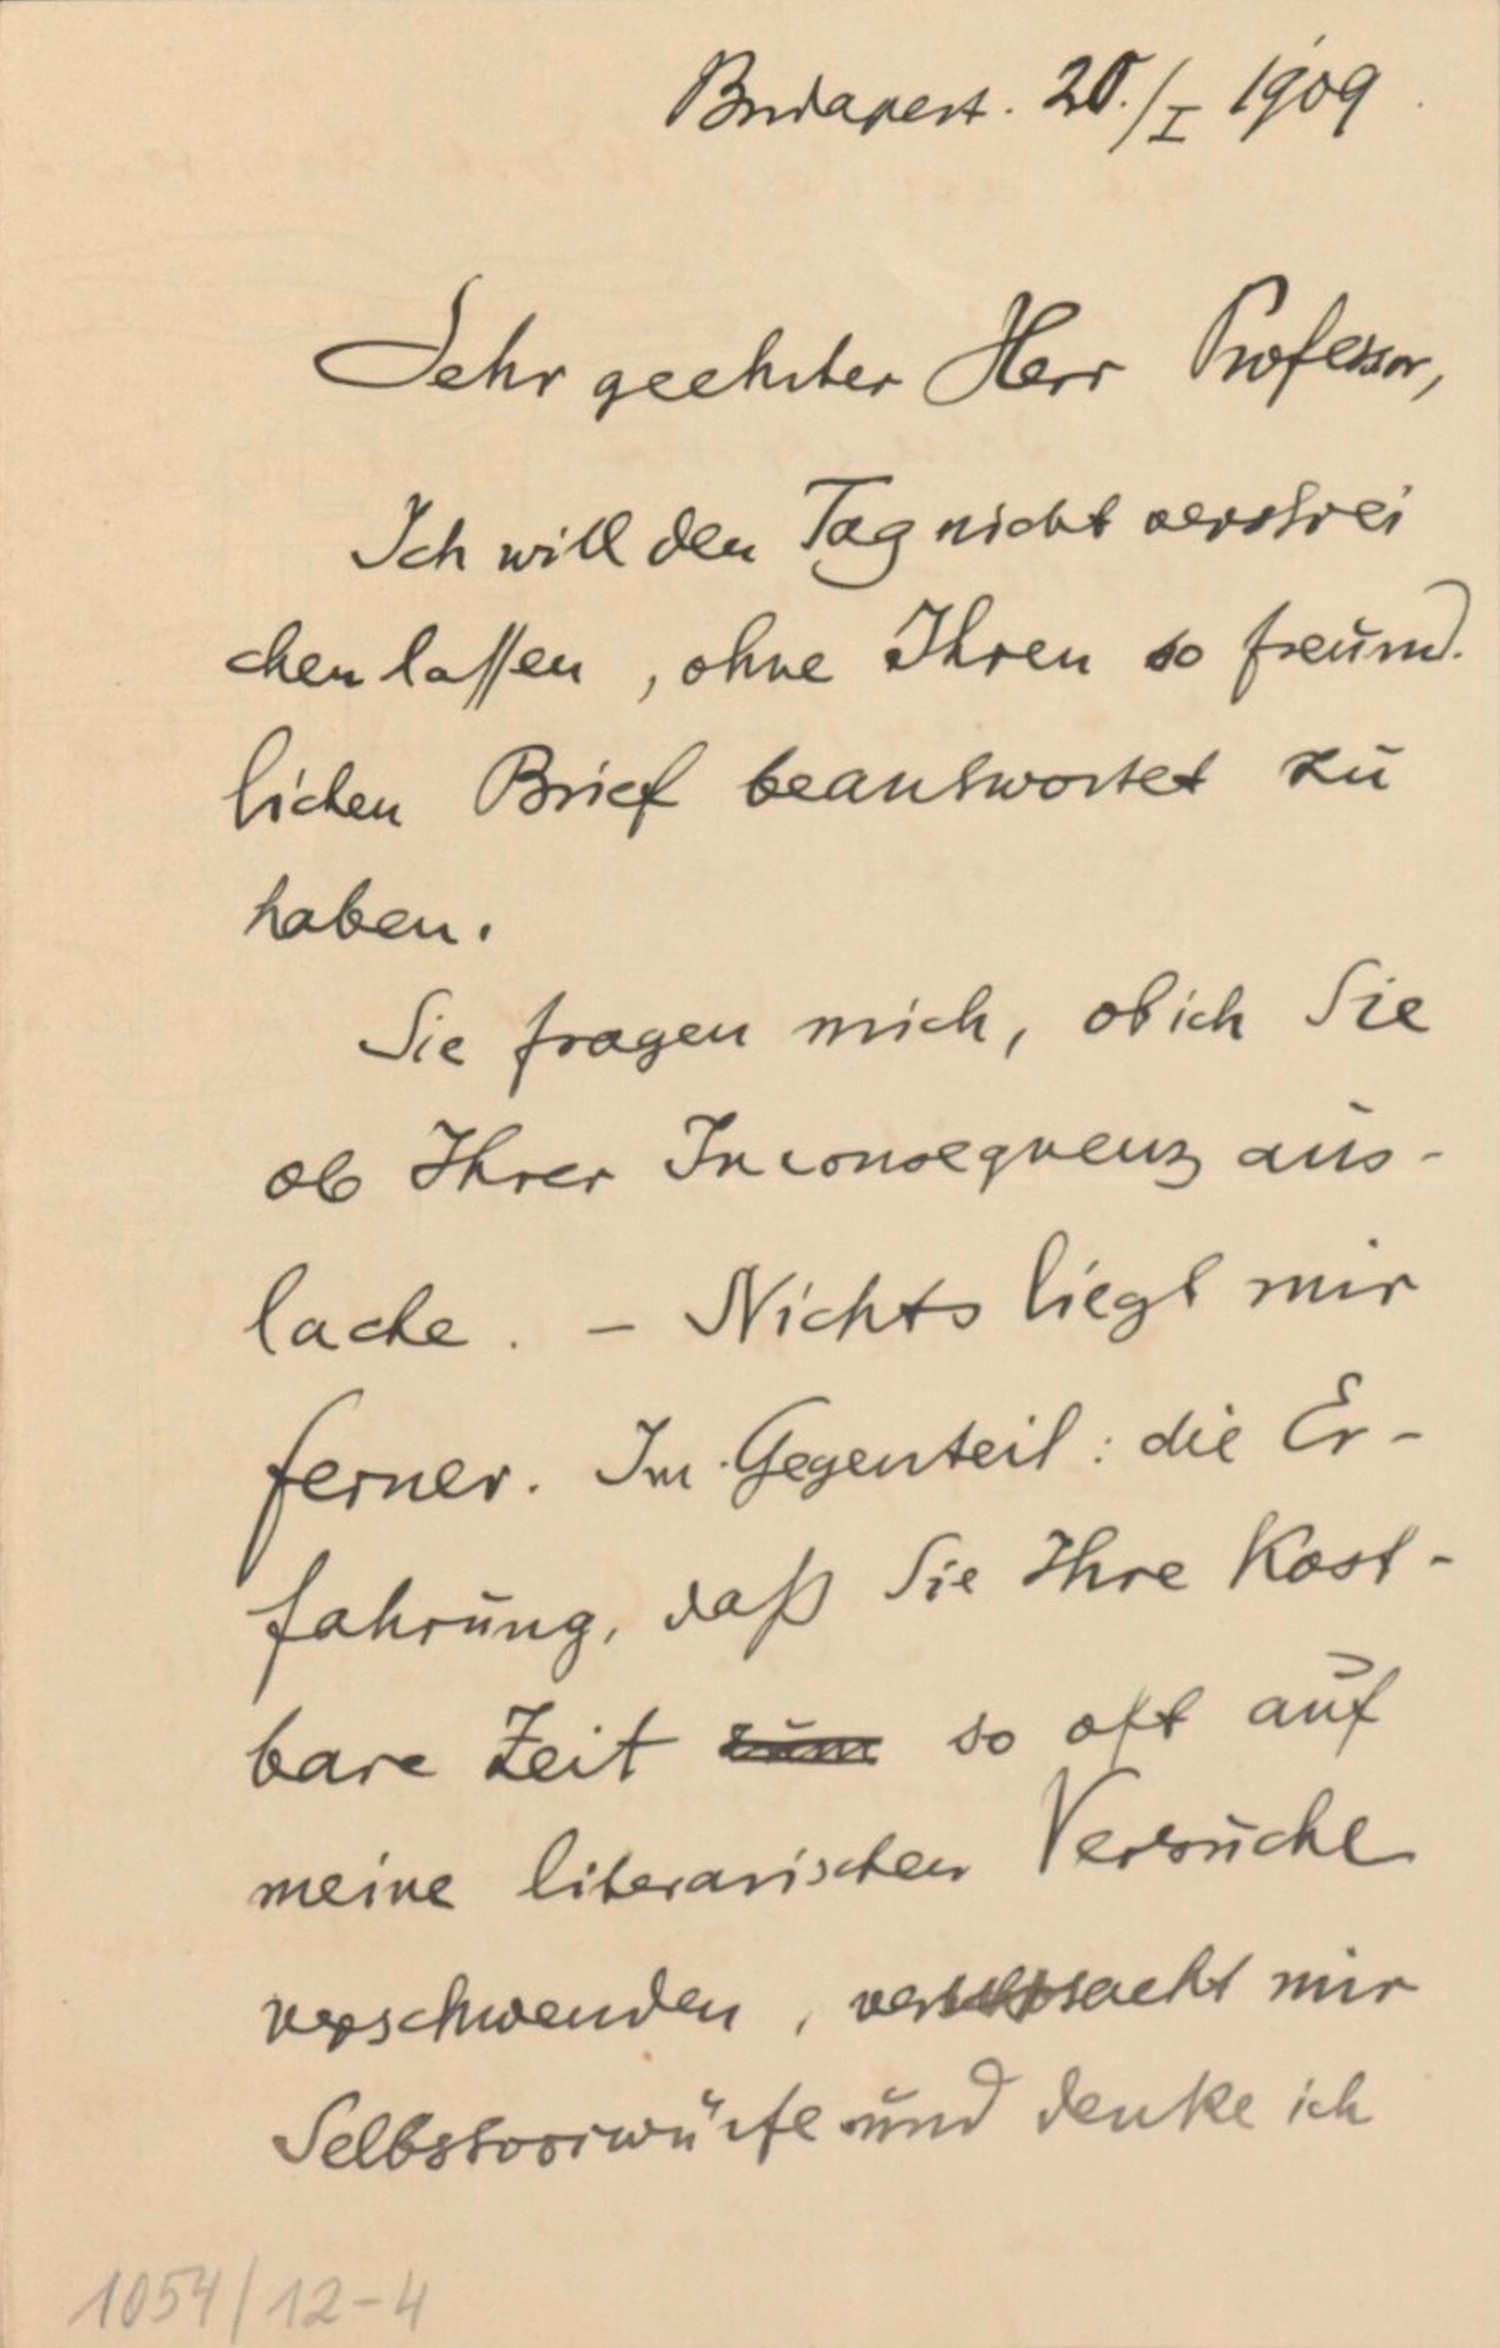 Budapest. 20./I 1909
Sehr geehrter Herr Professor,
Ich will den Tag nicht verstrei
chen lassen, ohne Ihren so freund.
lichen Brief beantwortet zu
haben.
Sie fragen mich, ob ich Sie
ob Ihrer Inconsequenz aus-
lache. – Nichts liegt mir
ferner. Im Gegenteil: die Er-
fahrung, daß Sie Ihre Kost-
bare Zeit zum so oft auf
meine literarischen Versuche
verschwenden, verursacht mir
Selbstvorwürfe und denke ich
1054/12-4